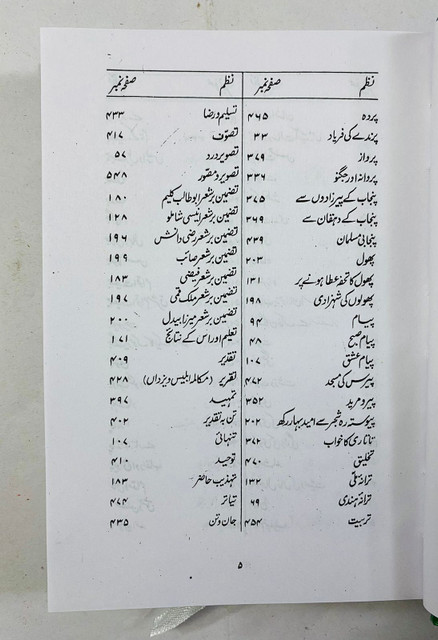 نظم صفحہ نمبر
پردہ ۴۶۵
پرندے کی فریاد ۳۳
پرواز ۳۷۹
پروانہ اور جگنو ۳۳۶
پنجاب کے پیرزادوں سے ۳۷۵
پنجاب کے دہقان سے ۳۶۹
پنجابی مسلمان ۴۳۹
پھول ۲۰۳
پھول کا تحفہ عطا ہونے پر ۱۳۱
پھولوں کی شہزادی ۱۹۸
پیام ۹۴
پیام صبح ۴۸
پیام عشق ۱۰۷
پیرس کی مسجد ۴۷۲
پیر و مرید ۳۵۲
پیوستہ رہ شجر سے امید بہار رکھ ۲۰۲
تاتاری کا خواب ۳۷۲
تخلیق ۴۷۰
ترانۂ ملّی ۱۳۲
ترانۂ ہندی ۶۹
تربیت ۴۵۴
نظم صفحہ نمبر
تسلیم و رضا ۴۳۳
تصوّف ۴۱۷
تصویر درد ۵۷
تصویر و مصور ۵۴۸
تضمین بر شعر ابوطالب کلیم ۱۸۰
تضمین بر شعر انیسی شاملو ۱۲۸
تضمین بر شعر رضی دانش ۱۹۶
تضمین بر شعر صائب ۱۹۹
تضمین بر شعر فیضی ۱۸۳
تضمین بر شعر ملک قمی ۱۹۷
تضمین بر شعر میرزا بیدل ۲۰۰
تعلیم اور اس کے نتائج ۱۷۱
تقدیر ۴۰۹
تقریر (مکالمہ ابلیس و یزداں) ۴۲۸
تمہید ۳۹۷
تن بہ تقدیر ۴۰۲
تنہائی ۱۰۷
توحید ۴۱۰
تہذیب حاضر ۱۸۳
تیاتر ۴۷۴
جان و تن ۴۳۵
۵